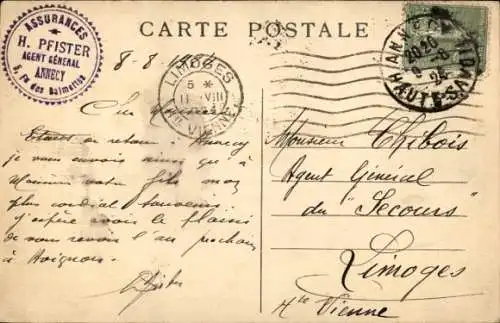 CARTE POSTALE
ASSURANCES
H. PFISTER
AGENT GÉNÉRAL
ANNECY
Fg des balmettes
8-8-
LIMOGES
5 *
11 VIII
Hte VIENNE
ANNECY
HAUTE SAVOIE
24
en retour Annecy
je vous envoie ainsi qu'à
Monsieur votre fils mon
plus cordial souvenir
j'espère avoir le plaisir
de vous revoir l'an prochain
à Avignon.
Pfister
Monsieur Thibois
Agent Général
du "Secours"
Limoges
Hte Vienne